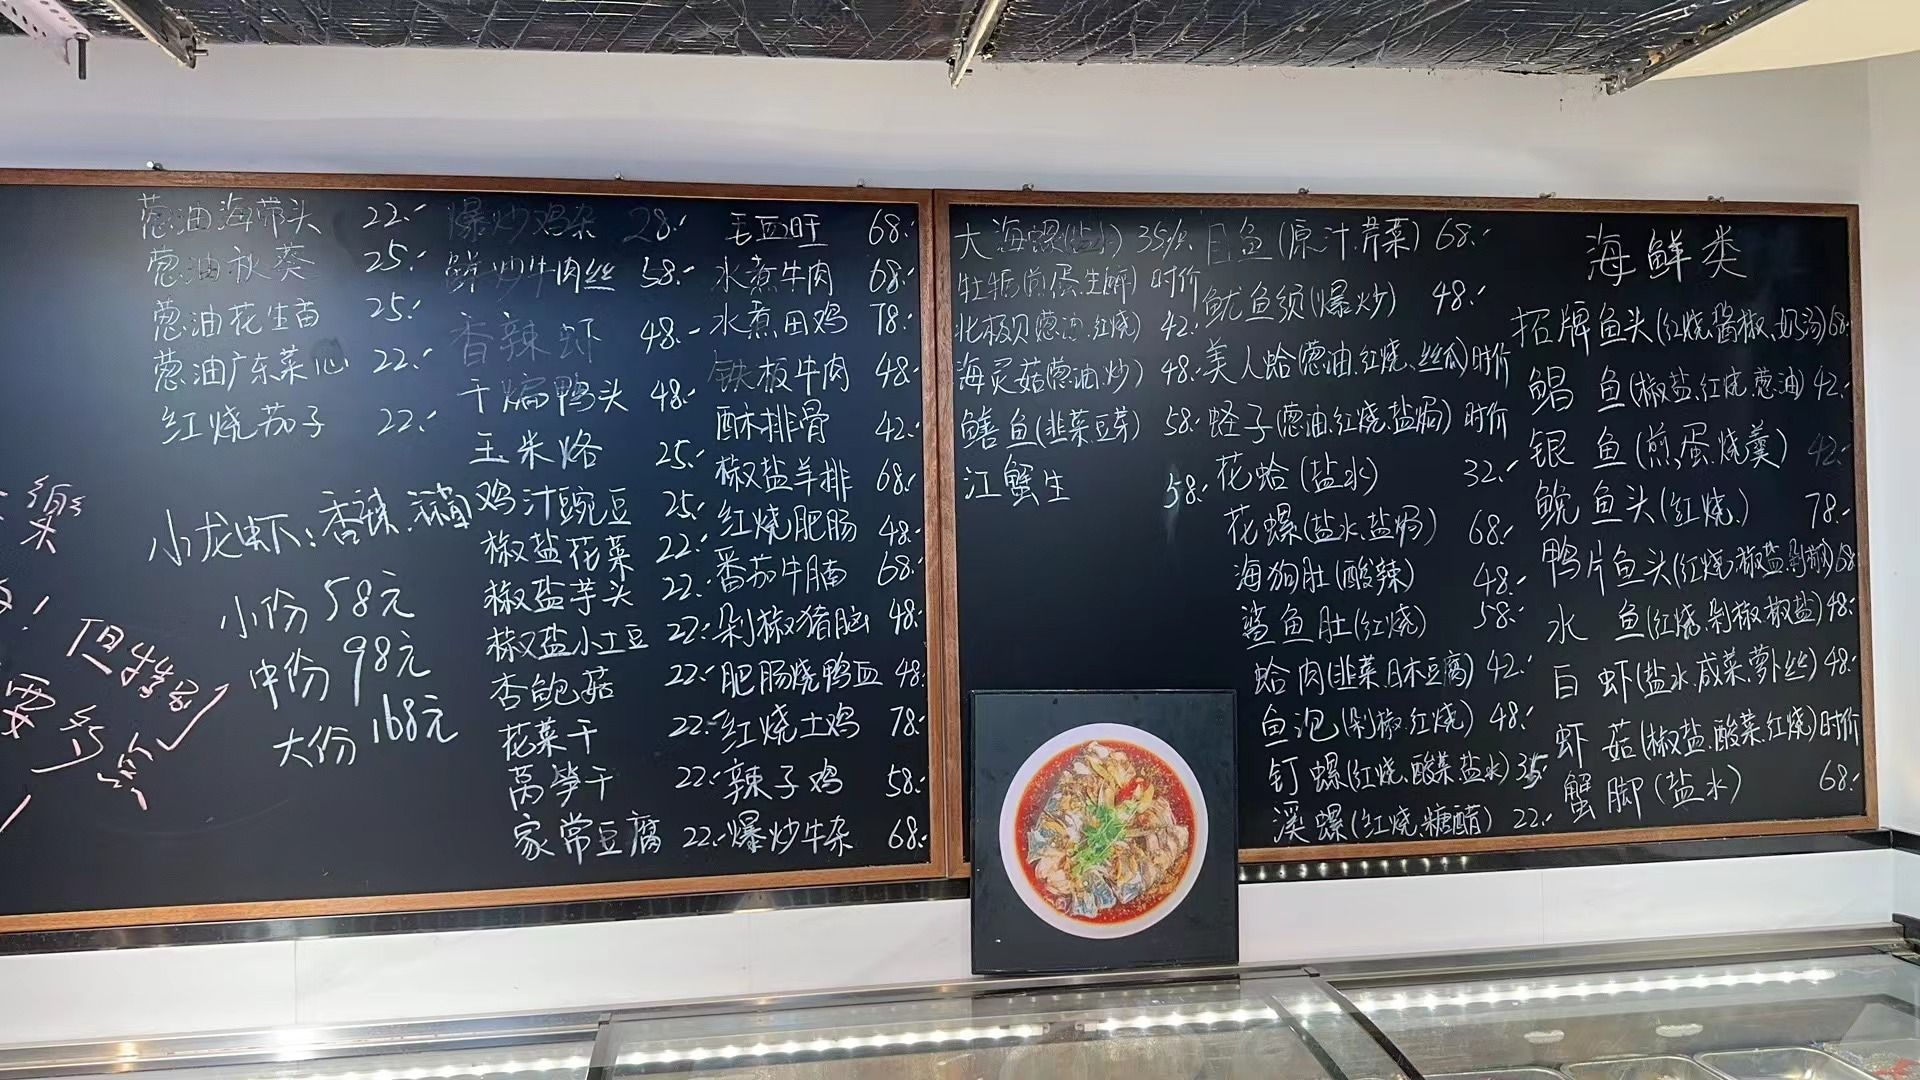 葱油海带头 22.-
葱油秋葵 25.-
葱油花生苗 25.-
葱油广东菜心 22.-
红烧茄子 22.-
小龙虾:香辣.
小份58元
中份98元
大份168元
但特别
爆炒鸡杂 28.-
鲜炒牛肉丝 58.-
香辣虾 48.-
干煸鸭头 48.-
玉米烙 25.-
鸡汁豌豆 25.-
椒盐花菜 22.-
椒盐芋头 22.-
椒盐小土豆 22.-
杏鲍菇 22.-
花菜干 22.-
莴笋干 22.-
家常豆腐 22.-
毛血旺 68.-
水煮牛肉 68.-
水煮田鸡 78.-
铁板牛肉 48.-
酥排骨 42.-
椒盐羊排 68.-
红烧肥肠 48.-
番茄牛腩 68.-
剁椒猪脑 48.-
肥肠烧鸭血 48.-
红烧土鸡 78.-
辣子鸡 58.-
爆炒牛杂 68.-
大海螺(盐水) 35/
牡蛎(煎蛋.生醉) 时价
北极贝(葱油.红烧) 42.-
海灵菇(葱油.炒) 48.-
鳝鱼(韭菜豆芽) 58.-
江蟹生 58.-
目鱼(原汁.芹菜) 68.-
鱿鱼须(爆炒) 48.-
美人蛤(葱油.红烧、丝瓜)时价
蛏子(葱油.红烧.盐焗) 时价
花蛤(盐水) 32.-
花螺(盐水.盐焗) 68.-
海狗肚(酸辣) 48.-
鲨鱼肚(红烧) 58.-
蛤肉(韭菜.日本豆腐) 42.-
鱼泡(剁椒.红烧) 48.-
钉螺(红烧.酸菜.盐水) 35
溪螺(红烧.糖醋) 22.-
海鲜类
招牌鱼头(红烧.酱椒、奶汤)68.-
鲳 鱼(椒盐.红烧.葱油) 42.-
银 鱼(煎蛋.烧羹) 42.-
鮸鱼头(红烧.) 78.-
鸭片鱼头(红烧.椒盐.剁椒)68
水 鱼(红烧.剁椒.椒盐)48.-
白 虾(盐水.咸菜.萝卜丝)48.-
虾 菇(椒盐.酸菜.红烧)时价
蟹 脚(盐水) 68.-